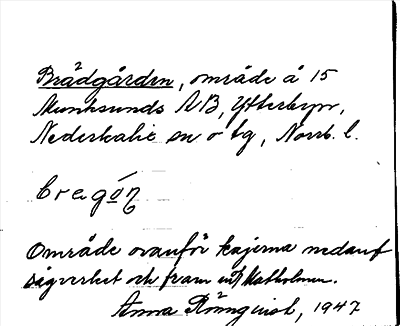 Brädgården, område å 15
Munksunds AB, Ytterbyn,
Nederkalix sn o tg, Norrb. l.
Område ovanför kajerna nedanf
sågverket och fram
Anna Rönnqvist, 1947